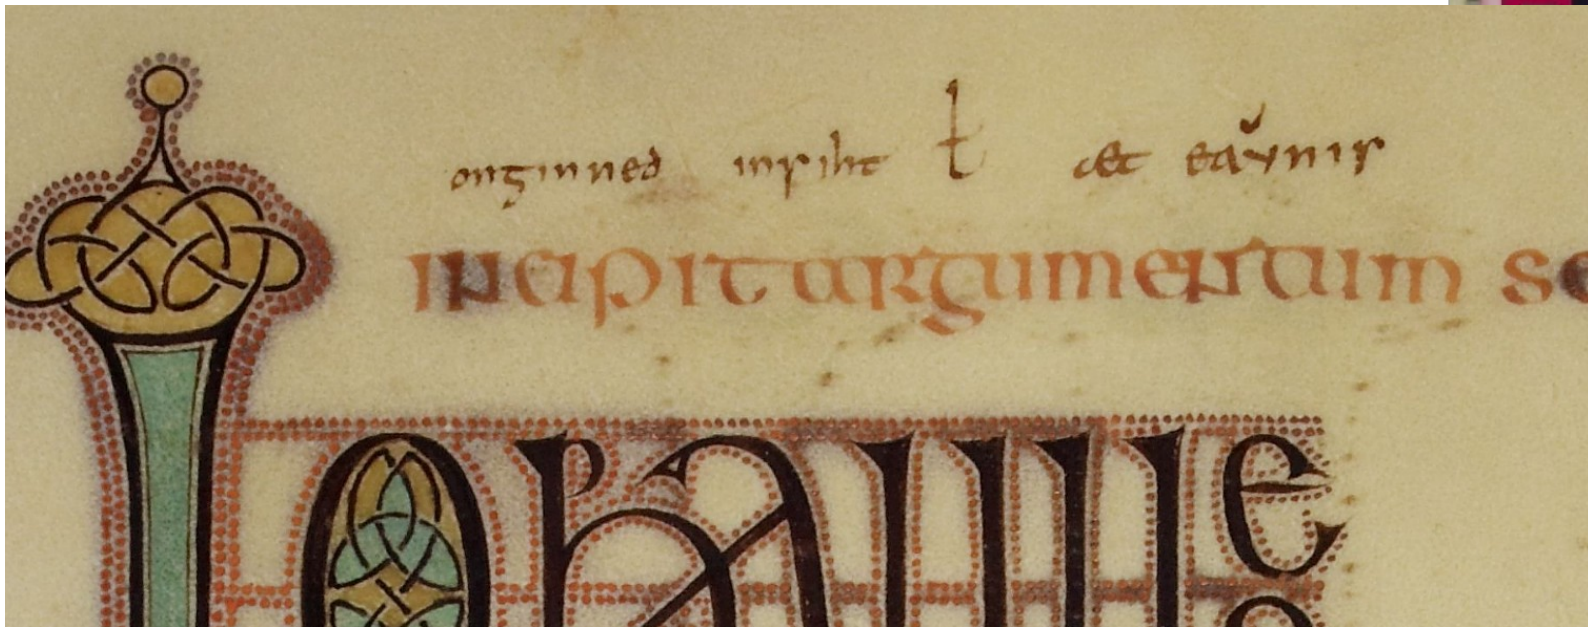 onginneð insiht ł æt eaunis
incipit argumentum se
Iohanne